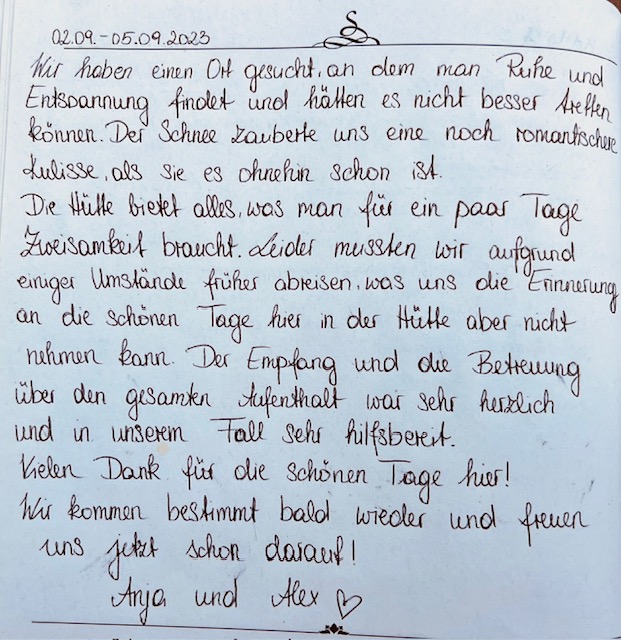 02.09.-05.09.2023
Wir haben einen Ort gesucht, an dem man Ruhe und
Entspannung findet und hätten es nicht besser treffen
können. Der Schnee zauberte uns eine noch romantischere
Kulisse, als sie es ohnehin schon ist.
Die Hütte bietet alles, was man für ein paar Tage
Zweisamkeit braucht. Leider mussten wir aufgrund
einiger Umstände früher abreisen, was uns die Erinnerung
an die schönen Tage hier in der Hütte aber nicht
nehmen kann. Der Empfang und die Betreuung
über den gesamten Aufenthalt war sehr herzlich
und in unserem Fall sehr hilfsbereit.
Vielen Dank für die schönen Tage hier!
Wir kommen bestimmt bald wieder und freuen
uns jetzt schon darauf!
Anja und Alex ♡